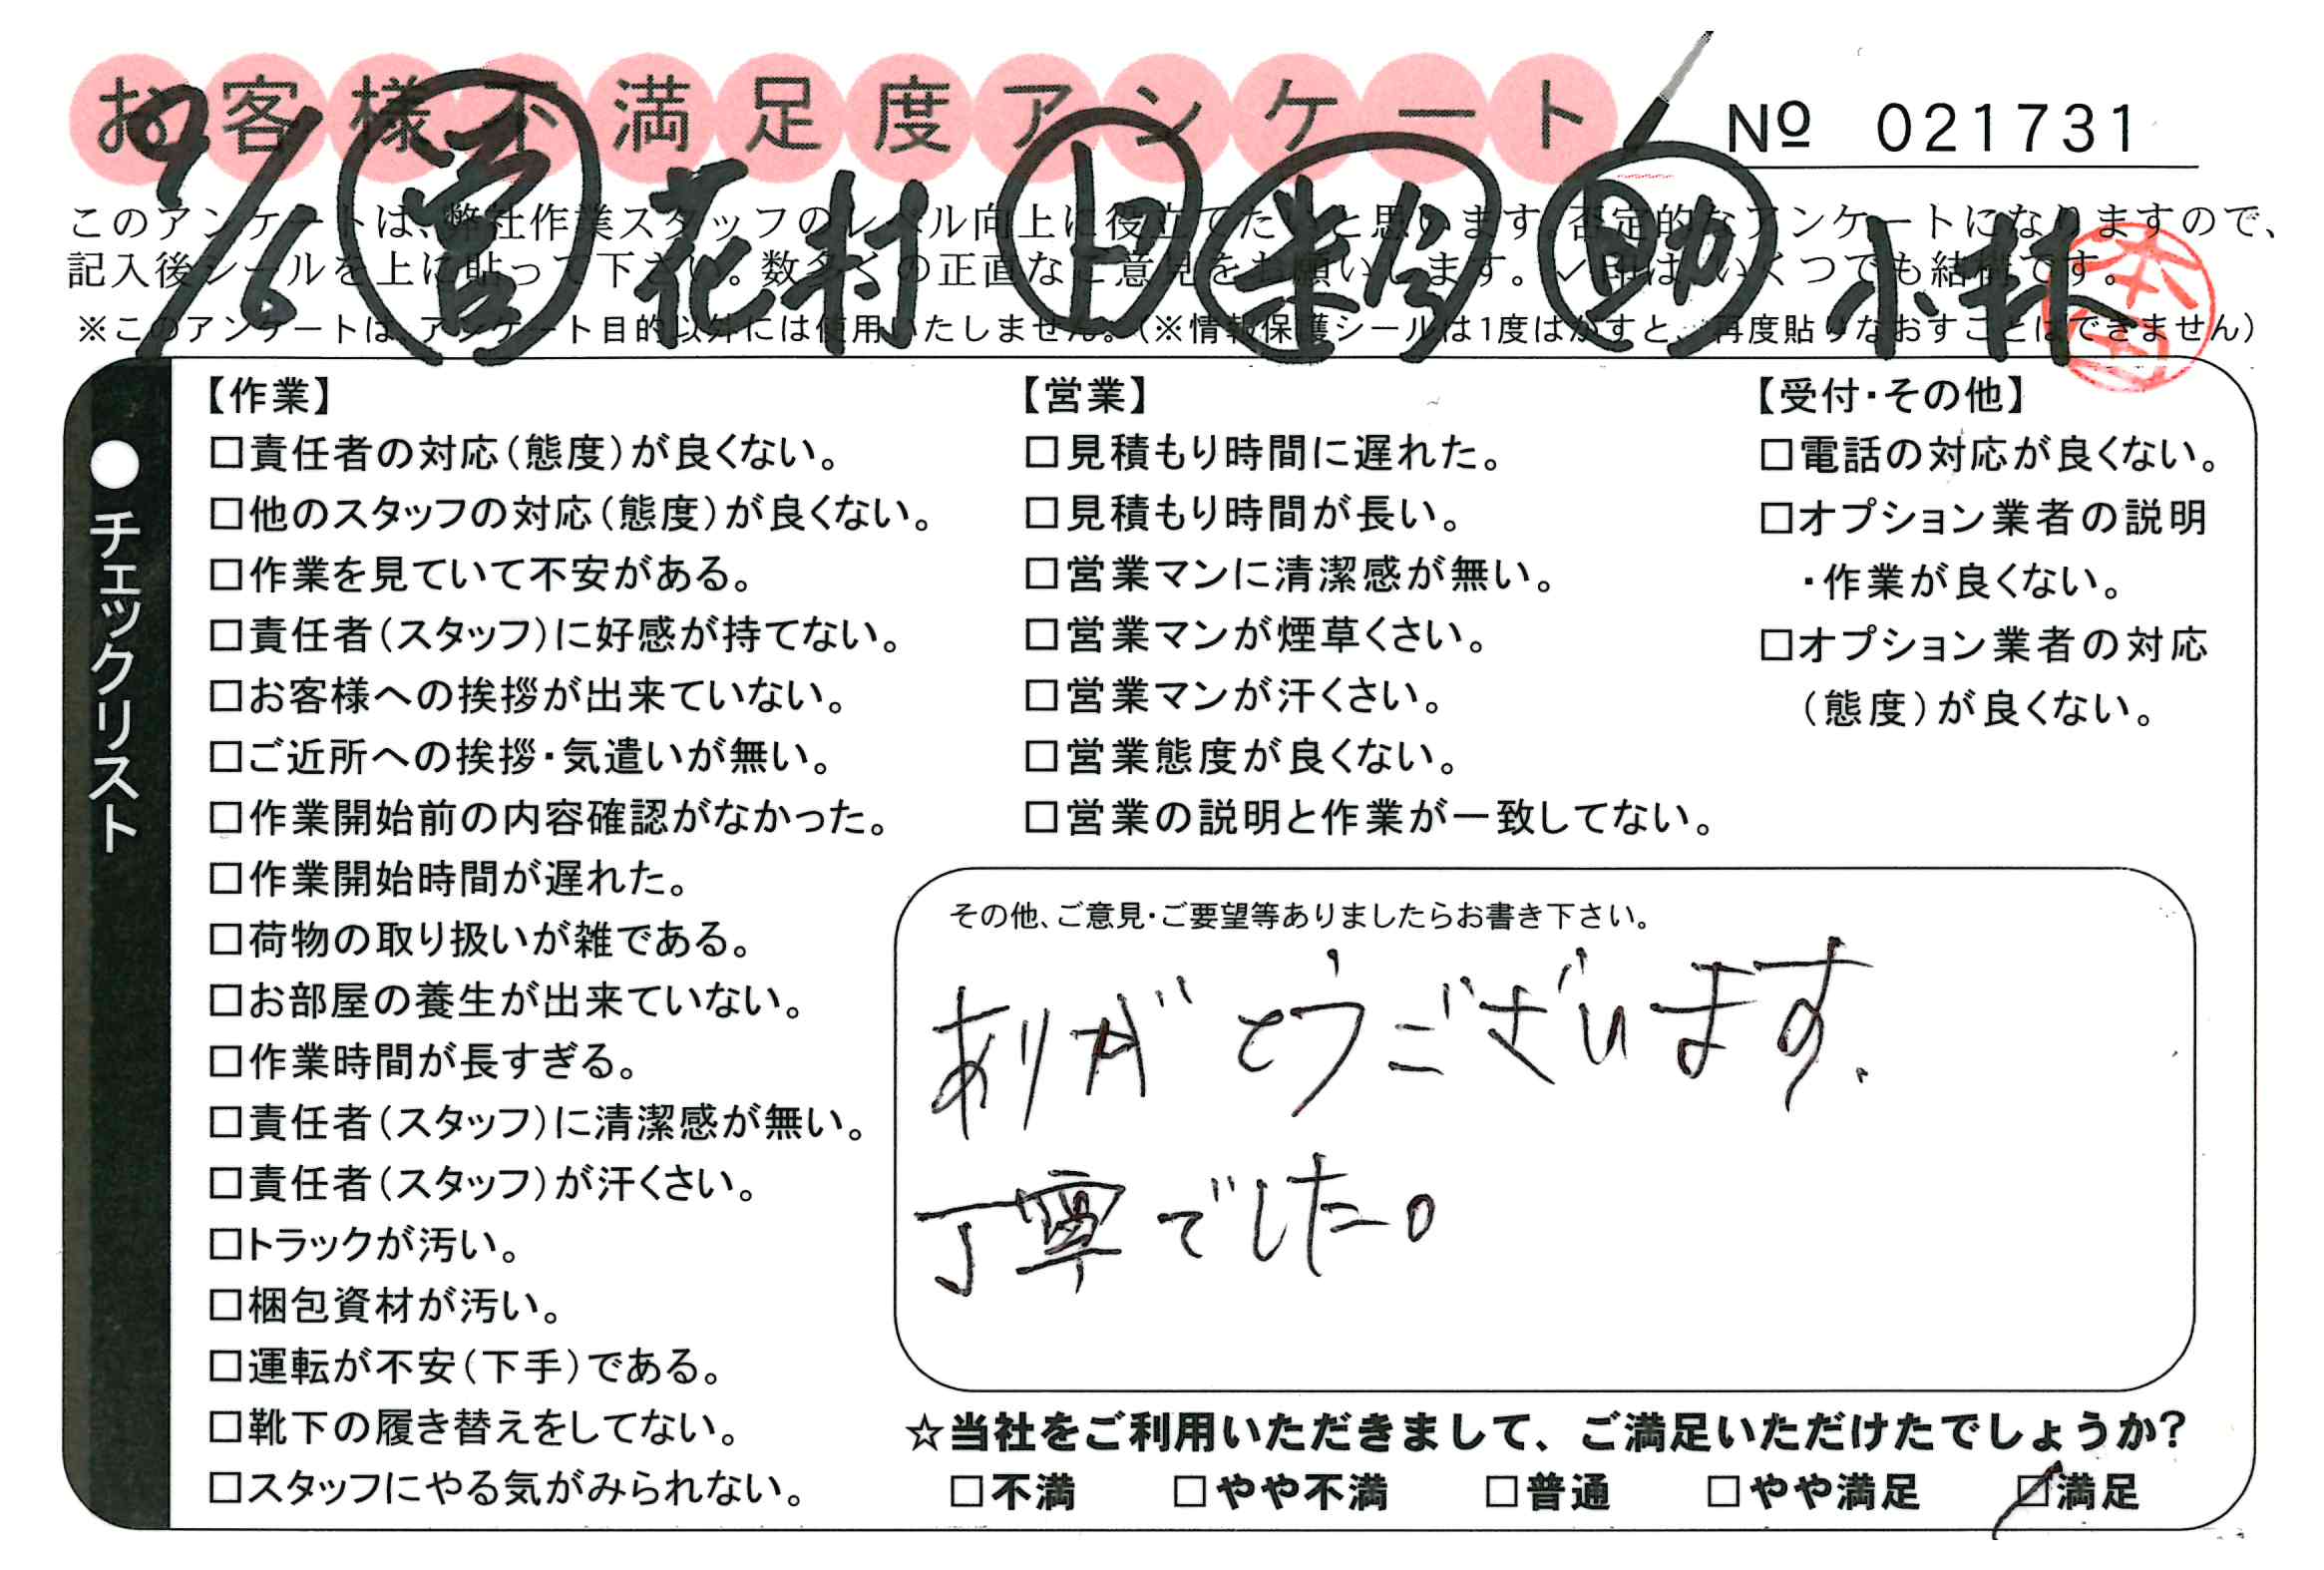 お客様不満足度アンケート
№ 021731
9/6 ㊂営 花村 上 助 小林
このアンケートは、弊社作業スタッフのレベル向上に役立てたいと思います。否定的なアンケートになりますので、
記入後シールを上に貼って下さい。数多くの正直なご意見をお願いします。✓印はいくつでも結構です。
※このアンケートは、アンケート目的以外には使用いたしません。(※情報保護シールは1度はがすと、再度貼りなおすことはできません)
●チェックリスト
【作業】
□責任者の対応(態度)が良くない。
□他のスタッフの対応(態度)が良くない。
□作業を見ていて不安がある。
□責任者(スタッフ)に好感が持てない。
□お客様への挨拶が出来ていない。
□ご近所への挨拶・気遣いが無い。
□作業開始前の内容確認がなかった。
□作業開始時間が遅れた。
□荷物の取り扱いが雑である。
□お部屋の養生が出来ていない。
□作業時間が長すぎる。
□責任者(スタッフ)に清潔感が無い。
□責任者(スタッフ)が汗くさい。
□トラックが汚い。
□梱包資材が汚い。
□運転が不安(下手)である。
□靴下の履き替えをしてない。
□スタッフにやる気がみられない。
【営業】
□見積もり時間に遅れた。
□見積もり時間が長い。
□営業マンに清潔感が無い。
□営業マンが煙草くさい。
□営業マンが汗くさい。
□営業態度が良くない。
□営業の説明と作業が一致してない。
【受付・その他】
□電話の対応が良くない。
□オプション業者の説明
・作業が良くない。
□オプション業者の対応
(態度)が良くない。
その他、ご意見・ご要望等ありましたらお書き下さい。
ありがとうございます.
丁寧でした。
☆当社をご利用いただきまして、ご満足いただけたでしょうか?
□不満 □やや不満 □普通 □やや満足 ☑満足